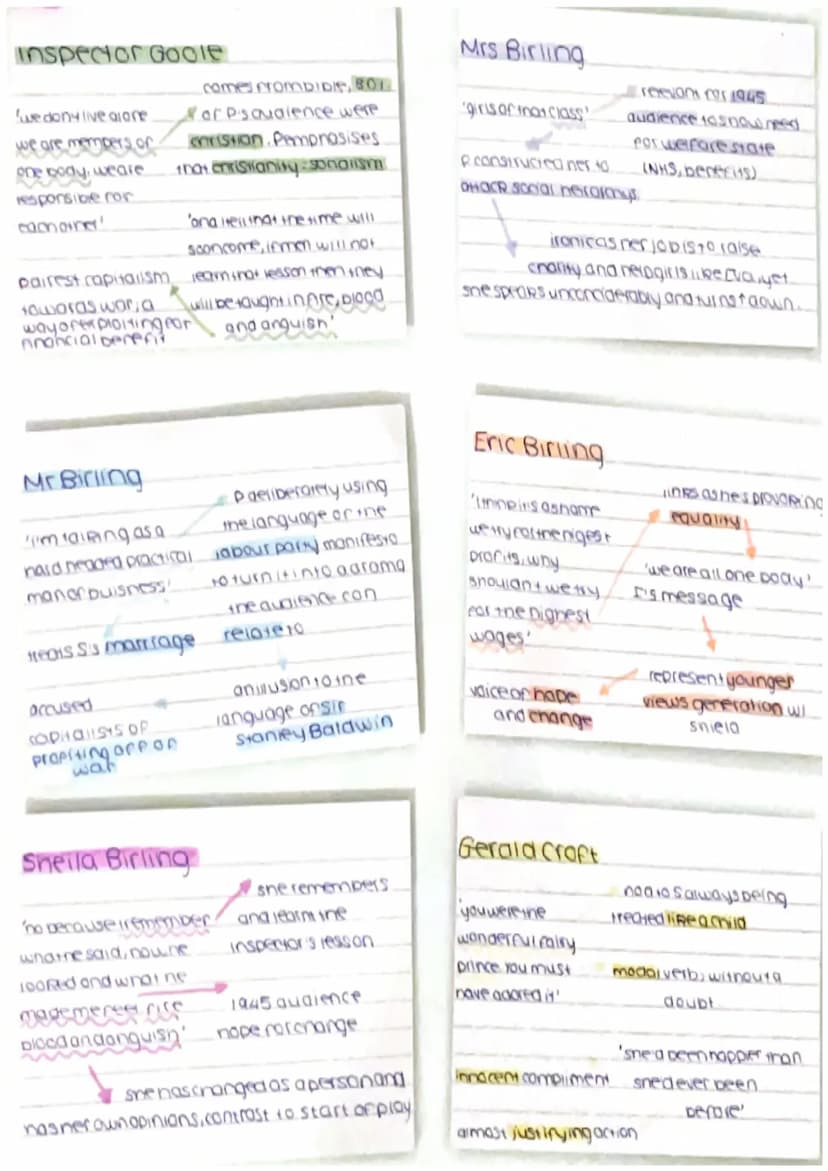 Inspector Goole
comes from bible, 80%
of P's audience were
christian. P emphasises
that christianity = socialism
'we don't live alone
we are members of
one body, we are
responsible for
each other'
'and i tell that the time will
soon come, if men will not
learn that lesson then they
will be taught in fire, blood
and anguish'
capitalism
towards war, a
way of exploiting for
financial benefit
Mrs Birling
'girls of that class'
relevant for 1945
audience to show need
for welfare state
(NHS, benefits)
P constructed her to
attack social heirarchys
ironic as her job is to raise
charity and help girls like Eva, yet
she speaks unconciderably and turns it down.
Mr Birling
'i'm talking as a
hard headed practical
man of buisness'
P deliberately using
the language of the
labour party manifesto
to turn it into a drama
the audience can
relate to
treats S's marriage
an illusion to the
language of sir
Stanley Baldwin
accused
capitalists of
profiting off of
war
Eric Birling
links as he's provoking
equality
why
shouldn't we try
for the highest
wages'
'we are all one body'
I's message
represent younger
views generation w/
shiela
voice of hope
and change
Sheila Birling
'no because i remember
what he said, how he
looked and what he
made me feel fire
blood and anguish'
she remembers
and learnt the
inspector's lesson
1945 audience
hope for change
she has changed as a person and
has her own opinions, contrast to start of play
Gerald Croft
'you were the
wonderful fairy
prince. You must
have adored it'
nod to S always being
treated like a child
modal verb; without a
doubt
'she'd been happier than
she'd ever been
before'
innocent compliment
almost justifying action